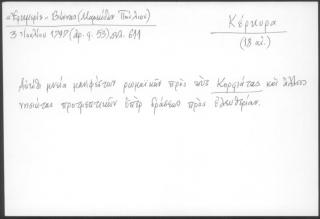 "Εφημερίς" - Βιέννης (Μαρκίδαι Πούλιου)
3 Ιουλίου 1797 (άρ. φ. 53) σελ. 611
Κέρκυρα
(18 αἰ.)
Αὐτόθι μνεία μανιφέστων ρωμαϊκῶν πρὸς τοὺς Κορφιάτας καὶ ἄλλους
νησιώτας προτρεπτικῶν ὑπὲρ δράσεως πρὸς ἐλευθερίαν.